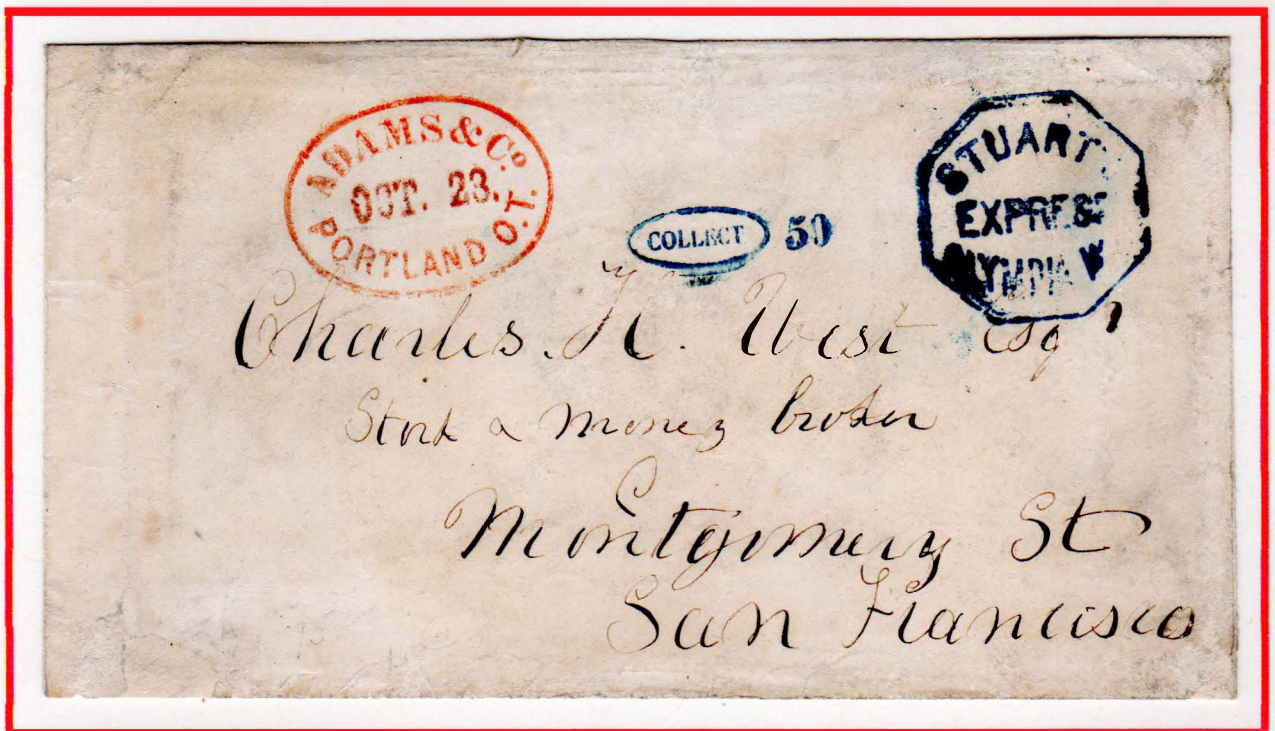 ADAMS & Co.
OCT. 23.
PORTLAND O.T.
COLLECT 50
STUART'S
EXPRESS
OLYMPIA W
Charles. H. West Esqr
Stock & Money broker
Montgomery St
San Francisco